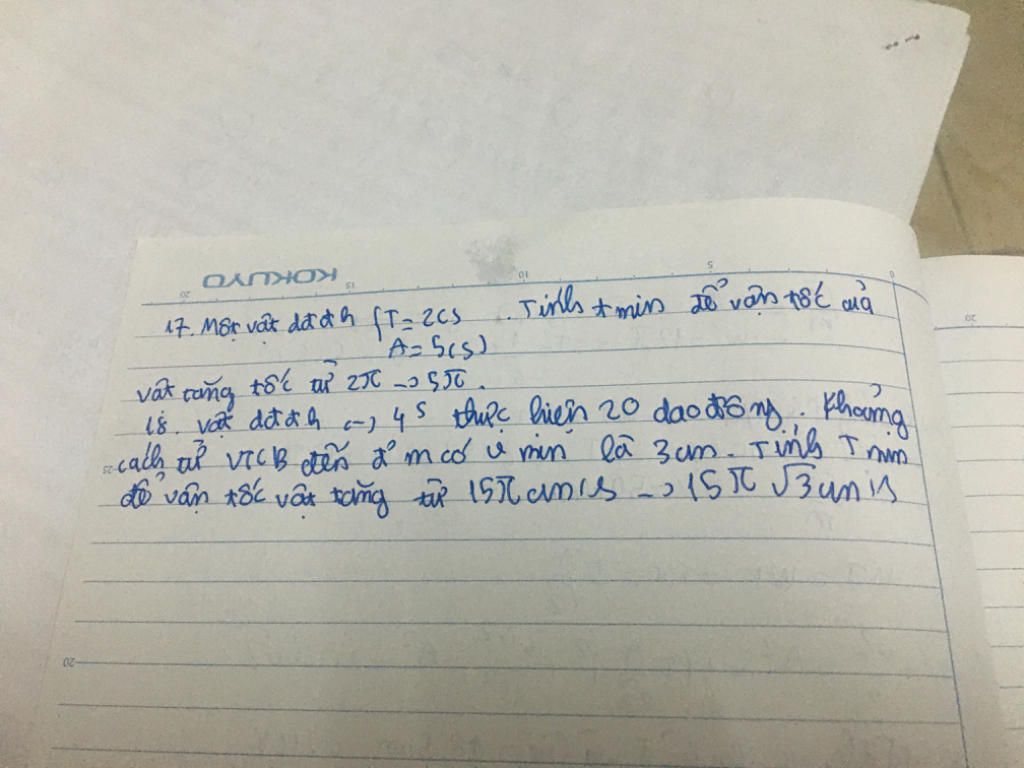 KOKUYO
20 15 10 5 0
20
17. Một vật dđđh {T = 2(s . Tính tmin để vận tốc quả
A = 5(s)
vật tăng tốc từ 2π → 5π.
18. vật dđđh (→) 4s thực hiện 20 dao động. Khoảng
cách từ VTCB đến đ' m có v min là 3cm. Tính Tmin
để vận tốc vật tăng từ 15π cm/s → 15π √3 cm/s
20